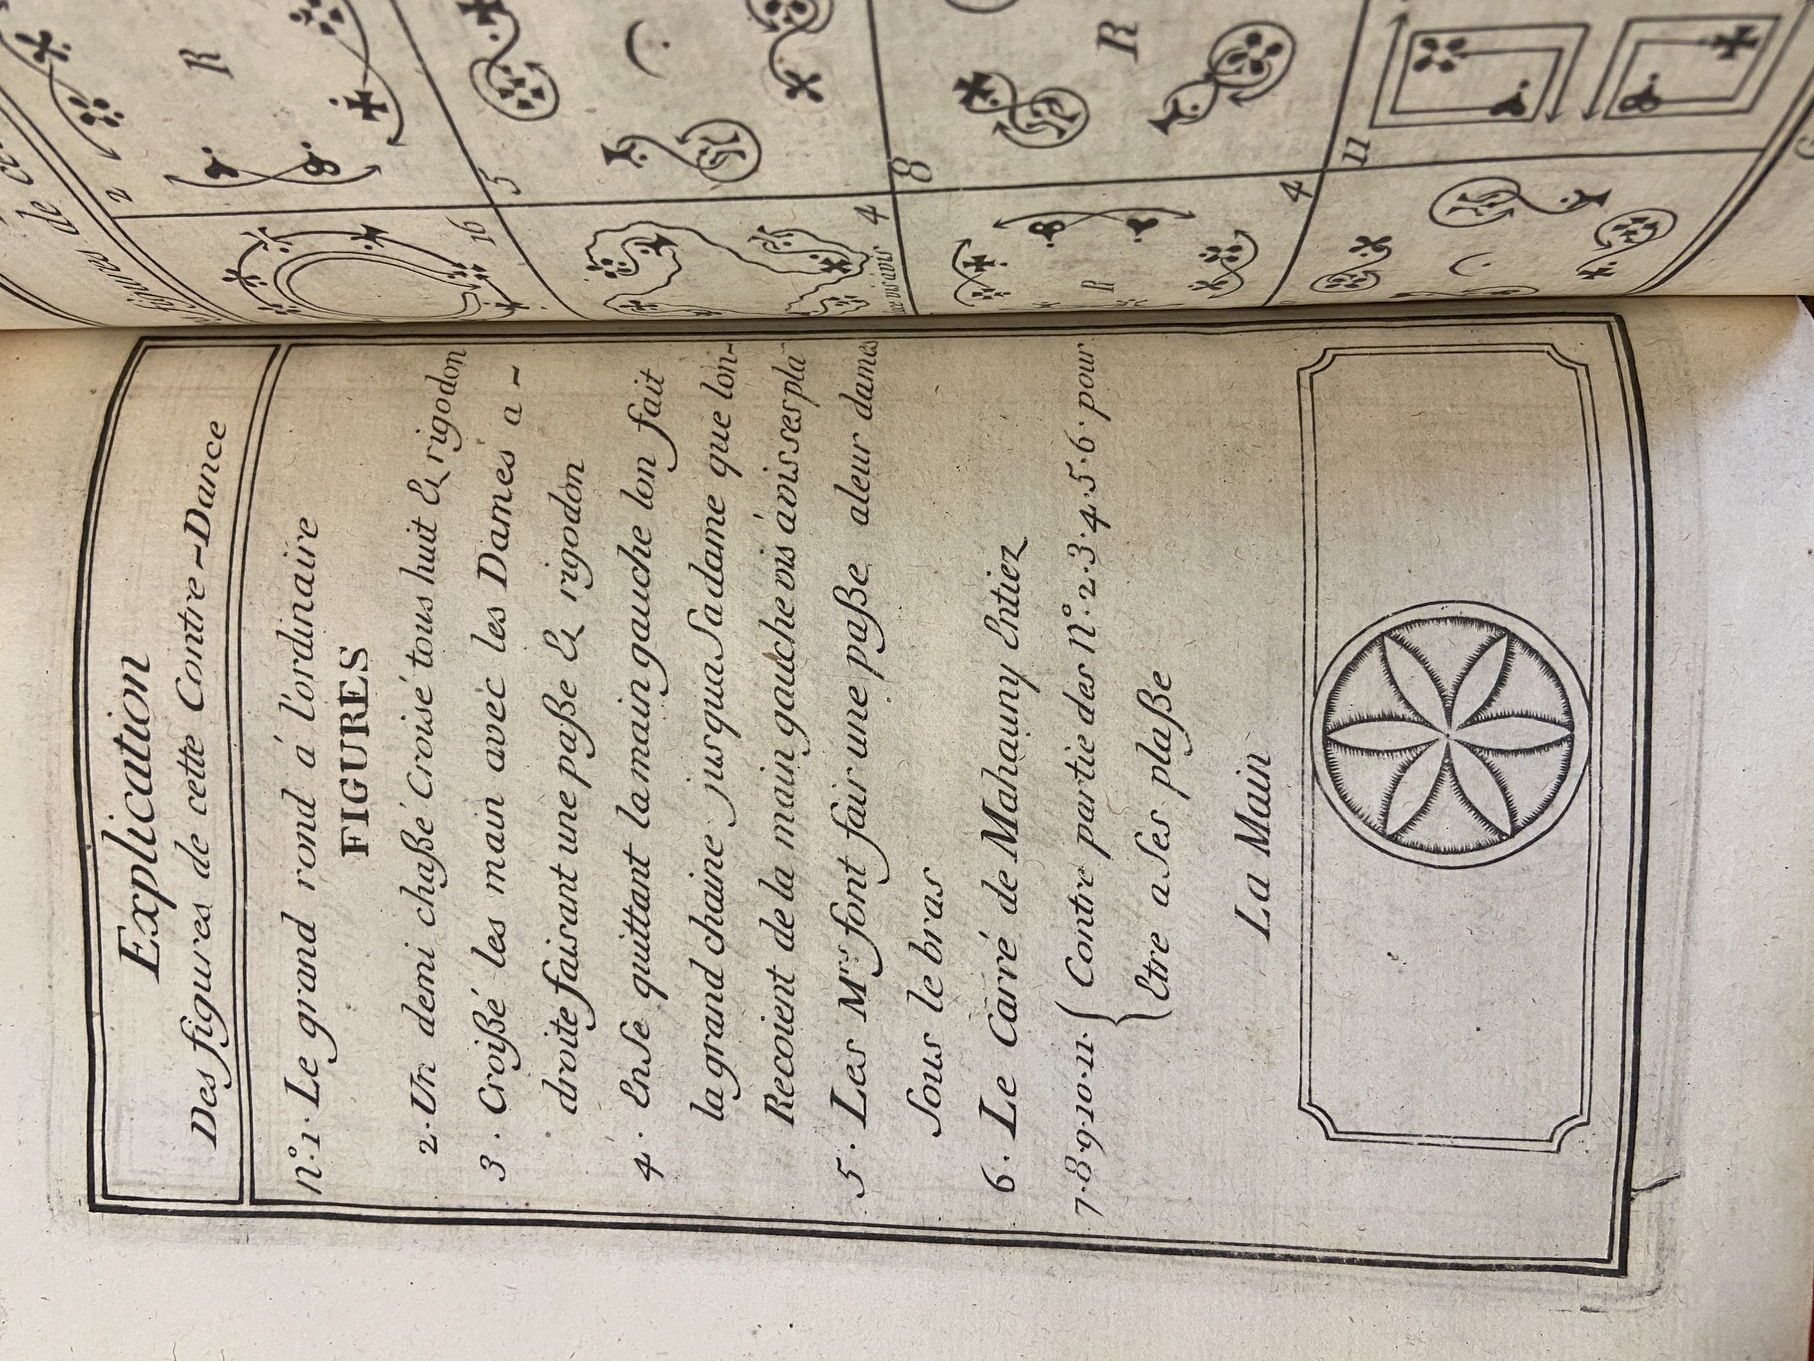 Explication
Des figures de cette Contre-Dance
n.º1. Le grand rond á l'ordinaire
FIGURES
2. Un demi chaßé Croisé tous huit & rigodon
3. Croißé les main avec les Dames a -
droite faisant une paße & rigodon
4. Ense quittant la main gauche lon fait
la grand chaine jusqua Sa dame que lon-
Recoient de la main gauche vis á vis ses pla
5. Les Mrs font fair une paße aleur dames
Sous le bras
6. Le Carré de Mahauny Entiez
7.8.9.10.11. { Contre partie das Nº. 2.3.4.5.6. pour
Etre a Ses plaße
La Main
figures de
2
R
16
5
4
8
R
R
4
11